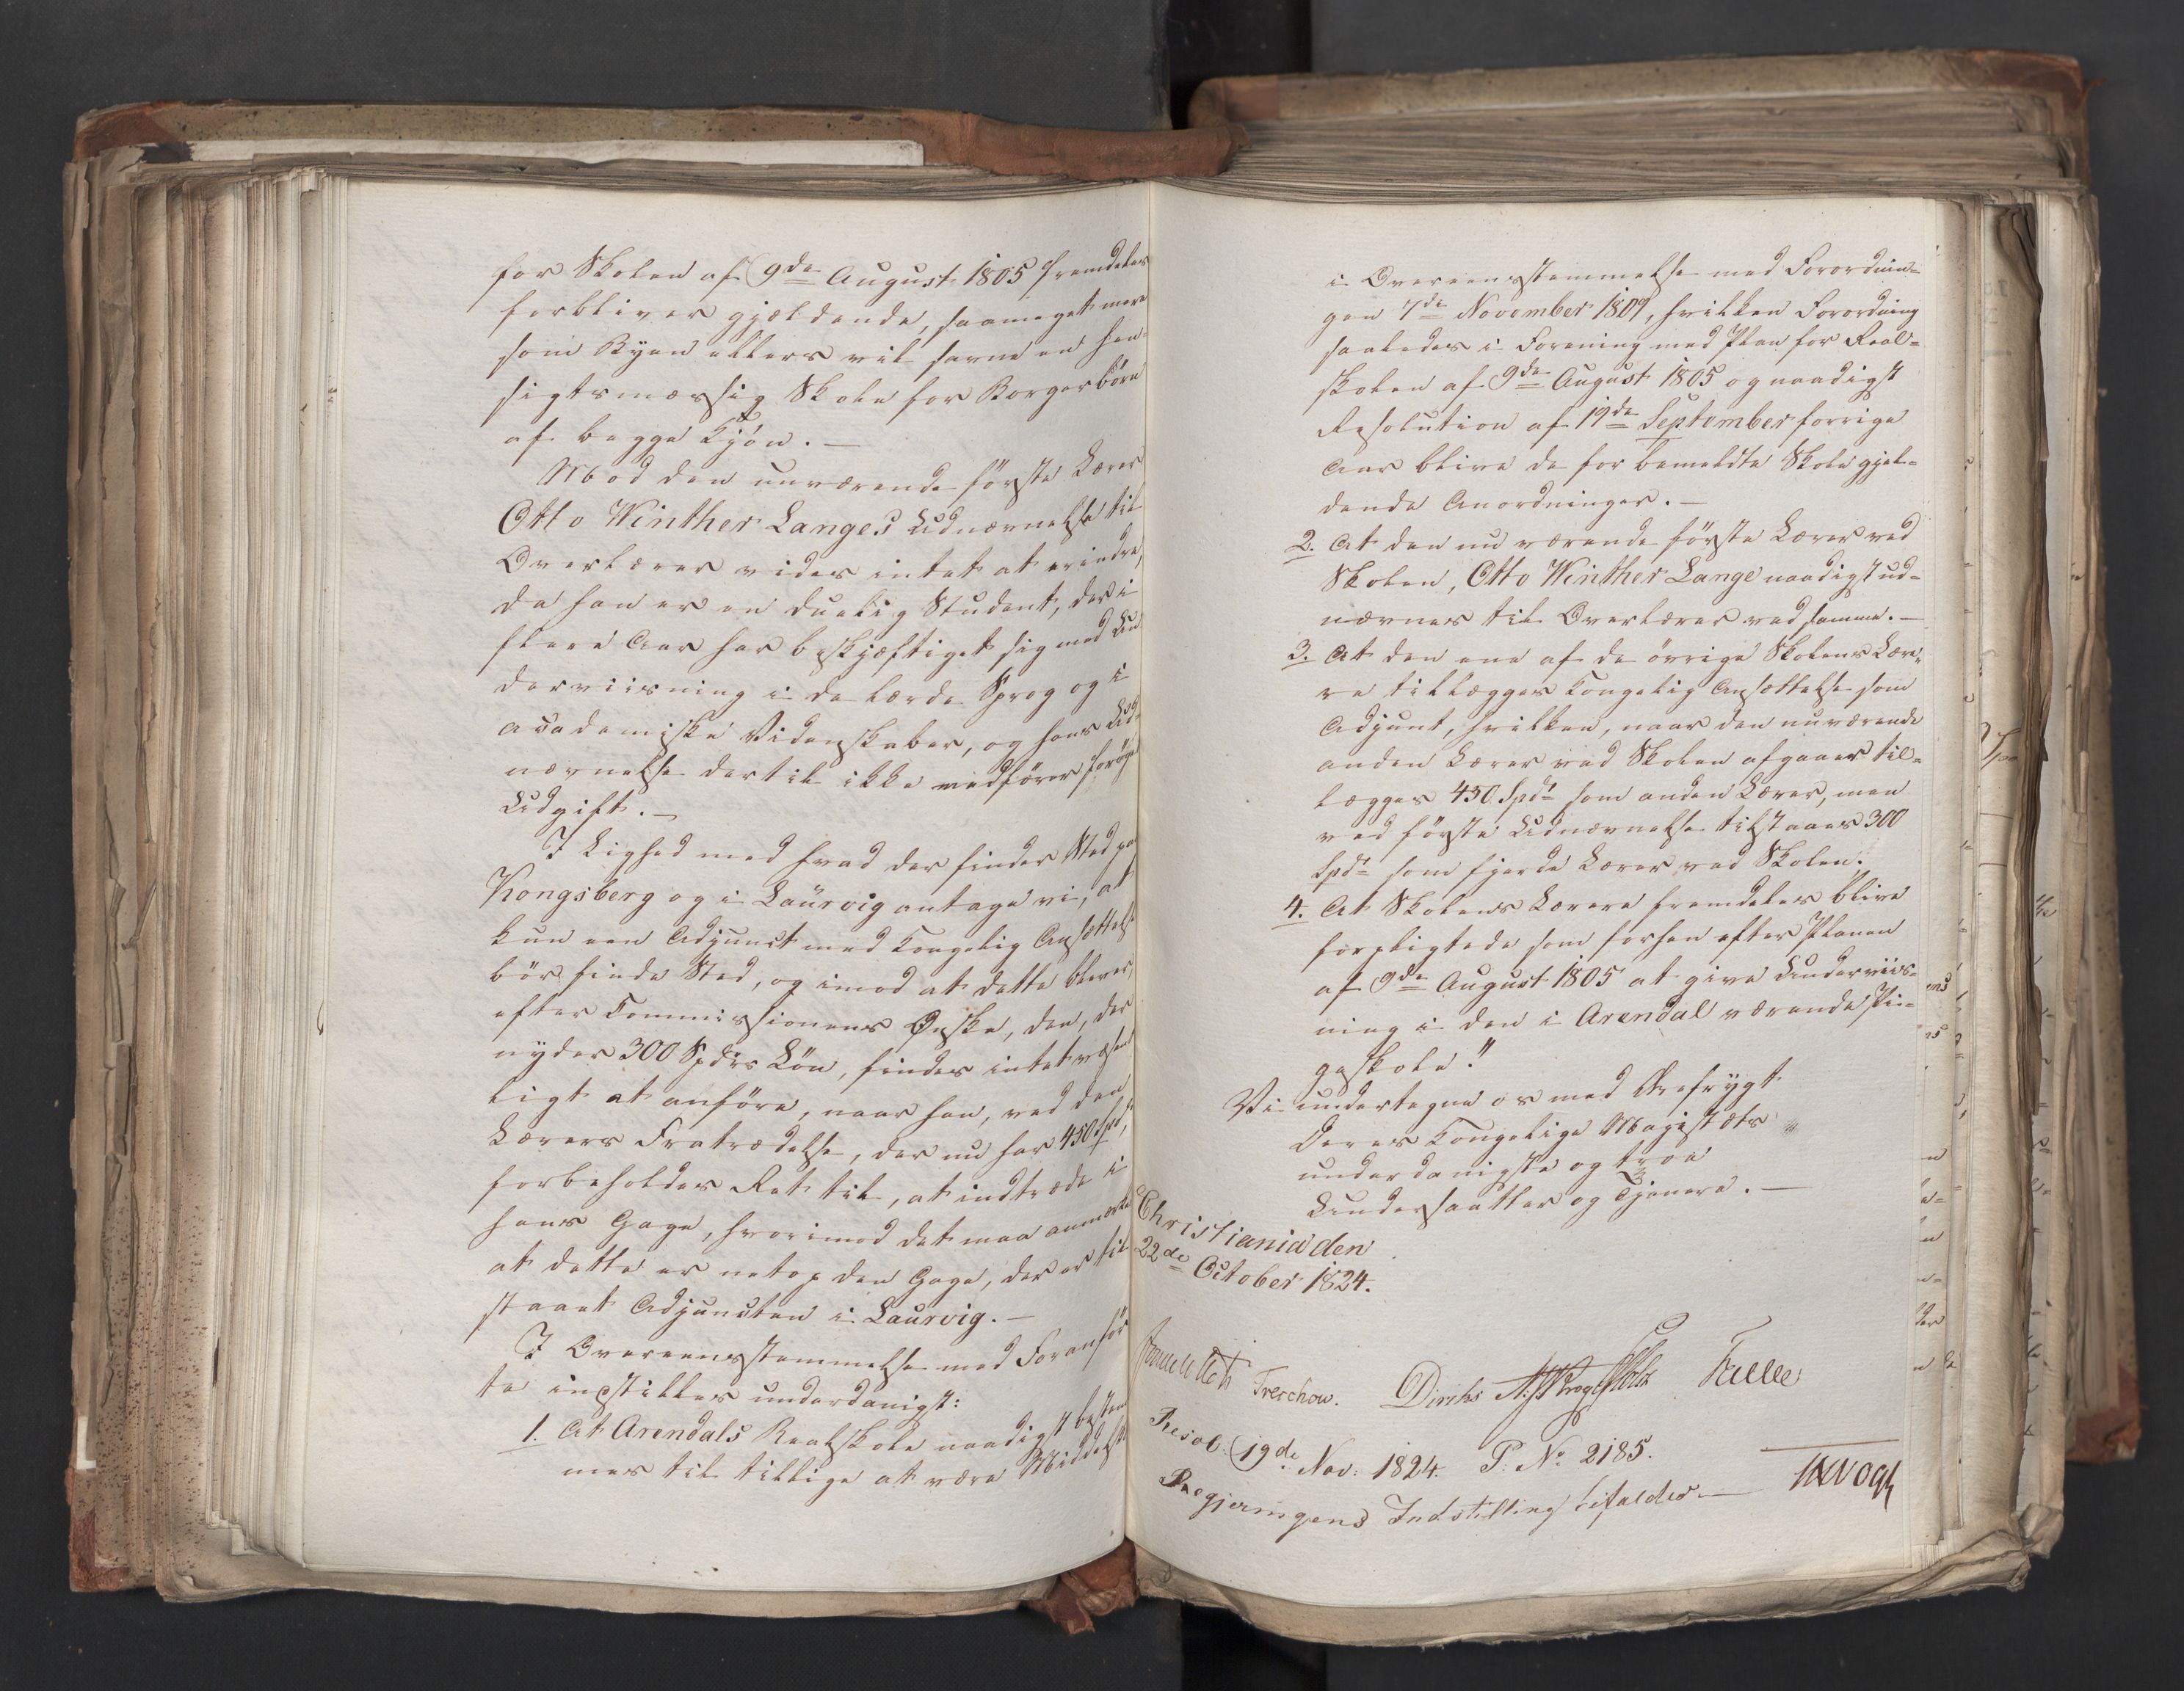 for Skolen af 9de August 1805 fremdeles
forbliver gjældende, saameget mere
som Byen ellers vil savne en hen-
sigtsmæssig Skole for Borgerbörn
af begge Kjön. —
Mod den nuværende förste Lærer
Otto Winther Langes Udnævnelse til
Overlærer vides intet at erindre,
da han er en duelig Student, der i
flere Aar har beskjæftiget sig med Un
derviisning i de lærde Sprog og i
academiske Videnskaber, og hans Ud-
nævnelse dertil ikke medfører forøget
Udgift. —
I Lighed med hvad der finder Sted paa
Kongsberg og i Laurvig antage vi, at
kun een Adjunct med Kongelig Ansættelse
bör finde Sted, og imod at dette bliver,
efter Commissionens Ønske, den, der
nyder 300 Spdrs Lön, findes intet væsent
ligt at anföre, naar han, ved den
Lærers Fratrædelse, der nu har 450 Spd,
forbeholdes Ret til, at indtræde i
hans Gage, hvorimod det maa anmærkes
at dette er netop den Gage, der er til
staaet Adjuncten i Laurvig. —
I Overeensstemmelse med Foranför
te indstilles underdanigst:
1. At Arendals Realskole naadigst bestem
mes til tillige at være Middelskole
i Overeensstemmelse med Forordnin-
gen 7de November 1809, hvilken Forordning
saaledes i Forening med Plan for Real-
skolen af 9de August 1805 og naadigst
Resolution af 19de September forrige
Aar blive de for bemeldte Skole gjel-
dende Anordninger. —
2. At den nu værende förste Lærer ved
Skolen, Otto Winther Lange naadigst ud-
nævnes til Overlærer ved samme. —
3. At den ene af de övrige Skolens Lære-
re tillægges Kongelig Ansættelse som
Adjunct, hvilken, naar den nuværende
anden Lærer ved Skolen afgaaer til-
lægges 450 Spd som anden Lærer, men
ved förste Udnævnelse tilstaaes 300
Spd som fjerde Lærer ved Skolen.
4. At Skolens Lærere fremdeles blive
forpligtede som forhen efter Planen
af 9de August 1805 at give Underviis-
ning i den i Arendal værende Pi-
geskole."
Vi undertegne os med Ærefrygt
Deres Kongelige Majestæts
underdanigste og troe
Undersaatter og Tjenere. —
Christiania den
22de October 1824.
Treschow. Diriks
Resol. 19de Nov: 1824. P. No 2185.
Regjeringens Indstilling bifaldes. —